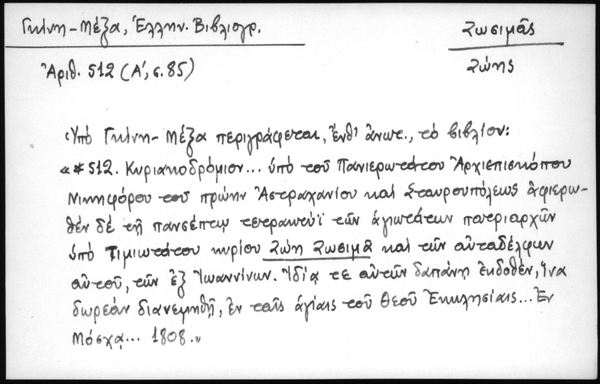 Γκίνη-Μέξα, Ἑλλην. Βιβλιογρ.
Ζωσιμᾶς
Ζώης
Ἀριθ. 512 (Α', σ. 85)
Ὑπό Γκίνη-Μέξα περιγράφεται, ἔνθ' ἀνωτ., τό βιβλίον:
«*512. Κυριακοδρόμιον... ὑπό τοῦ Πανιερωτάτου Ἀρχιεπισκόπου
Νικηφόρου τοῦ πρώην Ἀστραχανίου καί Σταυρουπόλεως ἀφιερω-
θέν δέ τῇ πανσέπτῳ τετρακτύϊ τῶν ἁγιωτάτων πατριαρχῶν
ὑπό τιμιωτάτου κυρίου Ζώη Ζωσιμᾶ καί τῶν αὐταδέλφων
αὐτοῦ, τῶν ἐξ Ἰωαννίνων. Ἰδίᾳ τε αὐτῶν δαπάνῃ ἐκδοθέν, ἵνα
δωρεάν διανεμηθῇ, ἐν ταῖς ἁγίαις τοῦ Θεοῦ Ἐκκλησίαις... Ἐν
Μόσχᾳ... 1808.»